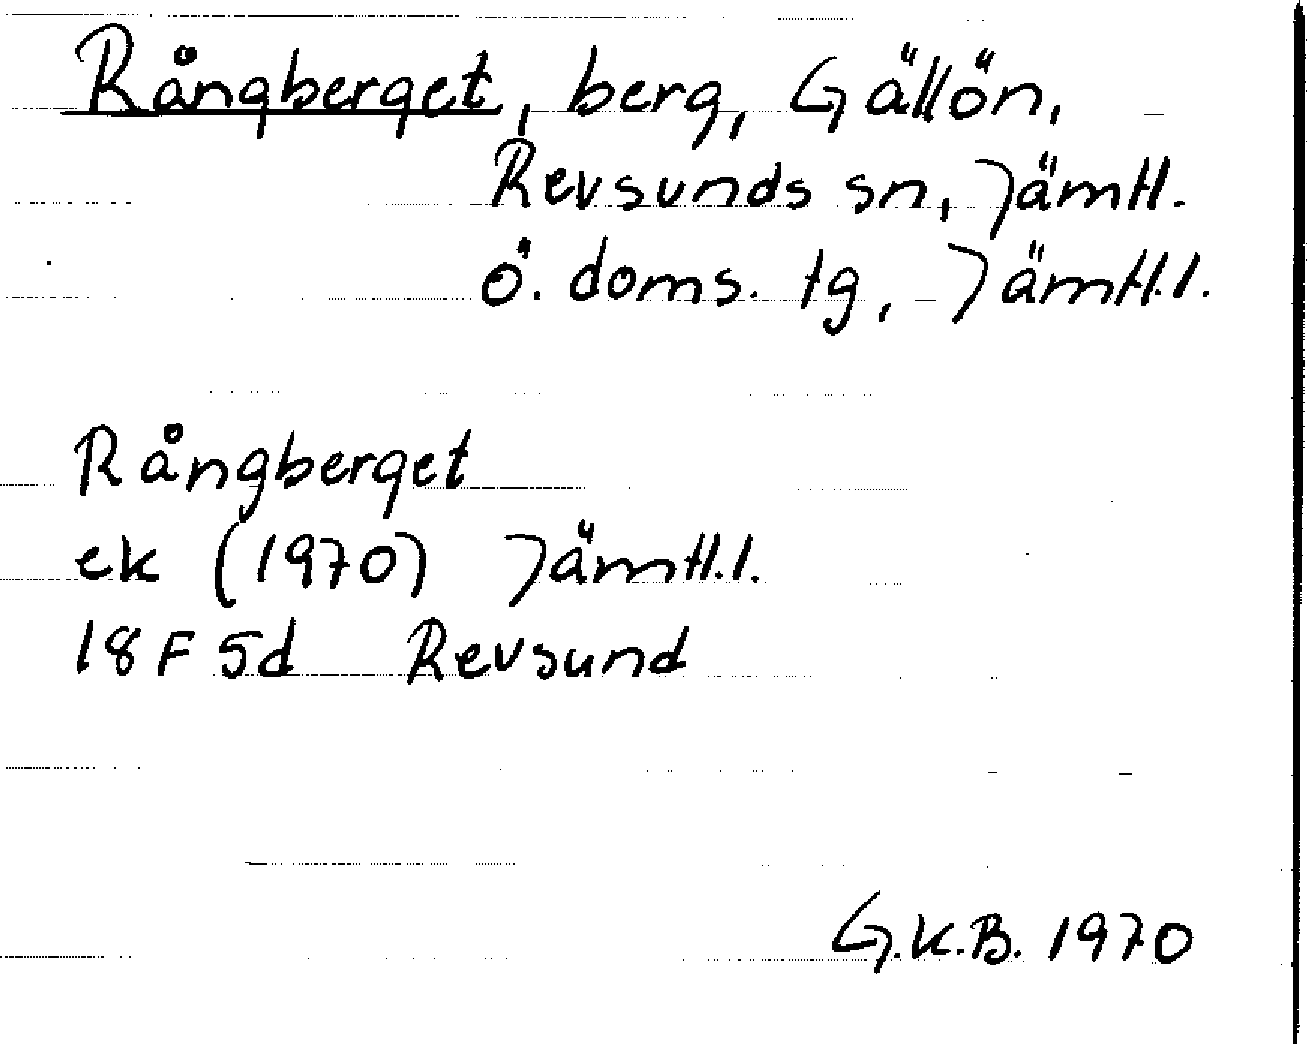 Rångberget, berg, Gällön,
Revsunds sn, Jämtl.
ö. doms. tg, Jämtl.l.
Rångberget
ek (1970) Jämtl.l.
18 F 5d Revsund
G.K.B. 1970